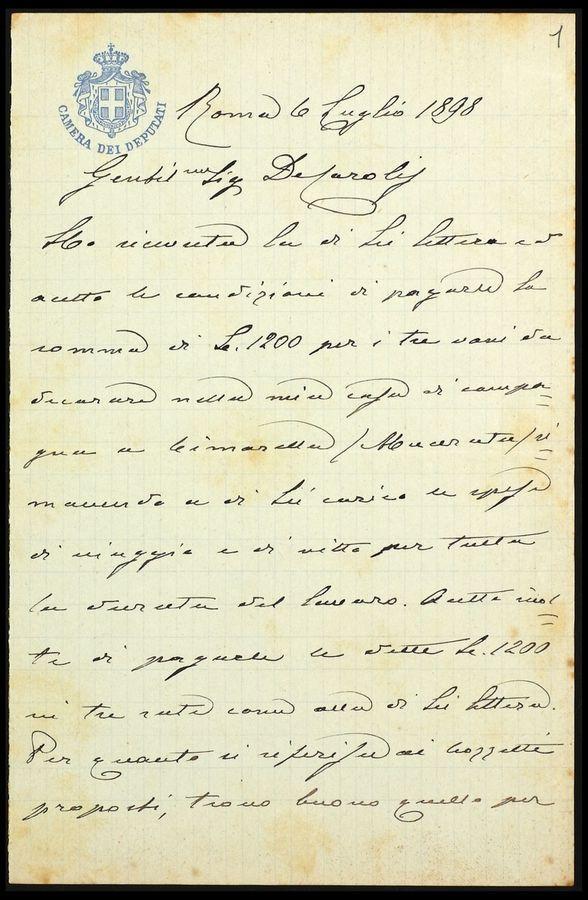 1
CAMERA DEI DEPUTATI
Roma 6 Luglio 1898
Gentil mo Sig De Carolis
Ho ricevuto la di Lei lettera ed
accetto le condizioni di pagare la
somma di Le. 1200 per i tre vani da
decorare nella mia casa di campa=
gna a (Macerata) ri=
manendo a di Lei carico le spese
di viaggio e di vitto per tutta
la durata del lavoro. Accetto inol=
tre di pagarle le dette Le. 1200
in tre rate come alla di Lei lettera.
Per quanto si riferisce ai bozzetti
proposti, trovo buono quello per